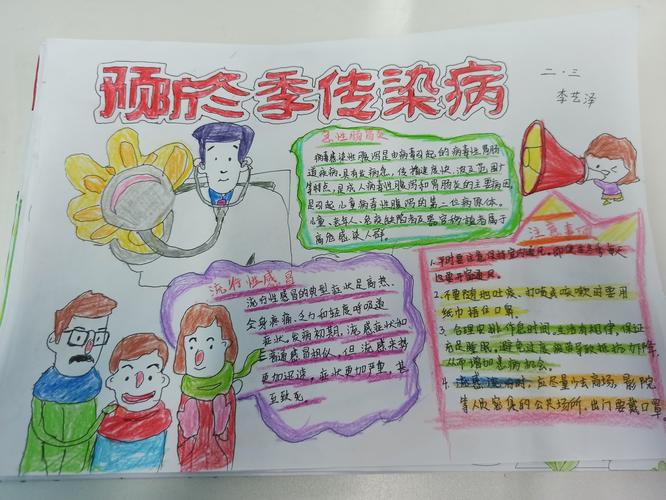 预防冬季传染病
二.三
李艺泽
急性肠胃炎
病毒感染性腹泻是由病毒引起的病毒性胃肠
道疾病,具有发病急、传播速度快、波及范围广
等特点,是成人病毒性腹泻和胃肠炎的主要病因
是引起儿童病毒性腹泻的第二位病原体。
儿童、老年人、免疫缺陷者及器官移植者属于
高危感染人群。
流行性感冒
流行性感冒的典型症状是高热、
全身疼痛、乏力和轻度呼吸道
症状。发病初期,流感症状和
普通感冒相似,但流感来势
更加迅速,症状更加严重,甚
至致死。
注意事项
1.平时要注意保持室内通风,即使
也要开窗通风。
2.不要随地吐痰、打喷嚏咳嗽时要用
纸巾捂住口鼻。
3.合理安排作息时间,生活有规律,保证
充足睡眠,避免过度疲劳导致抵抗力下降,
从而增加患病机会。
4.流感流行时,应尽量少去商场、影院
等人员密集的公共场所,出门要戴口罩。